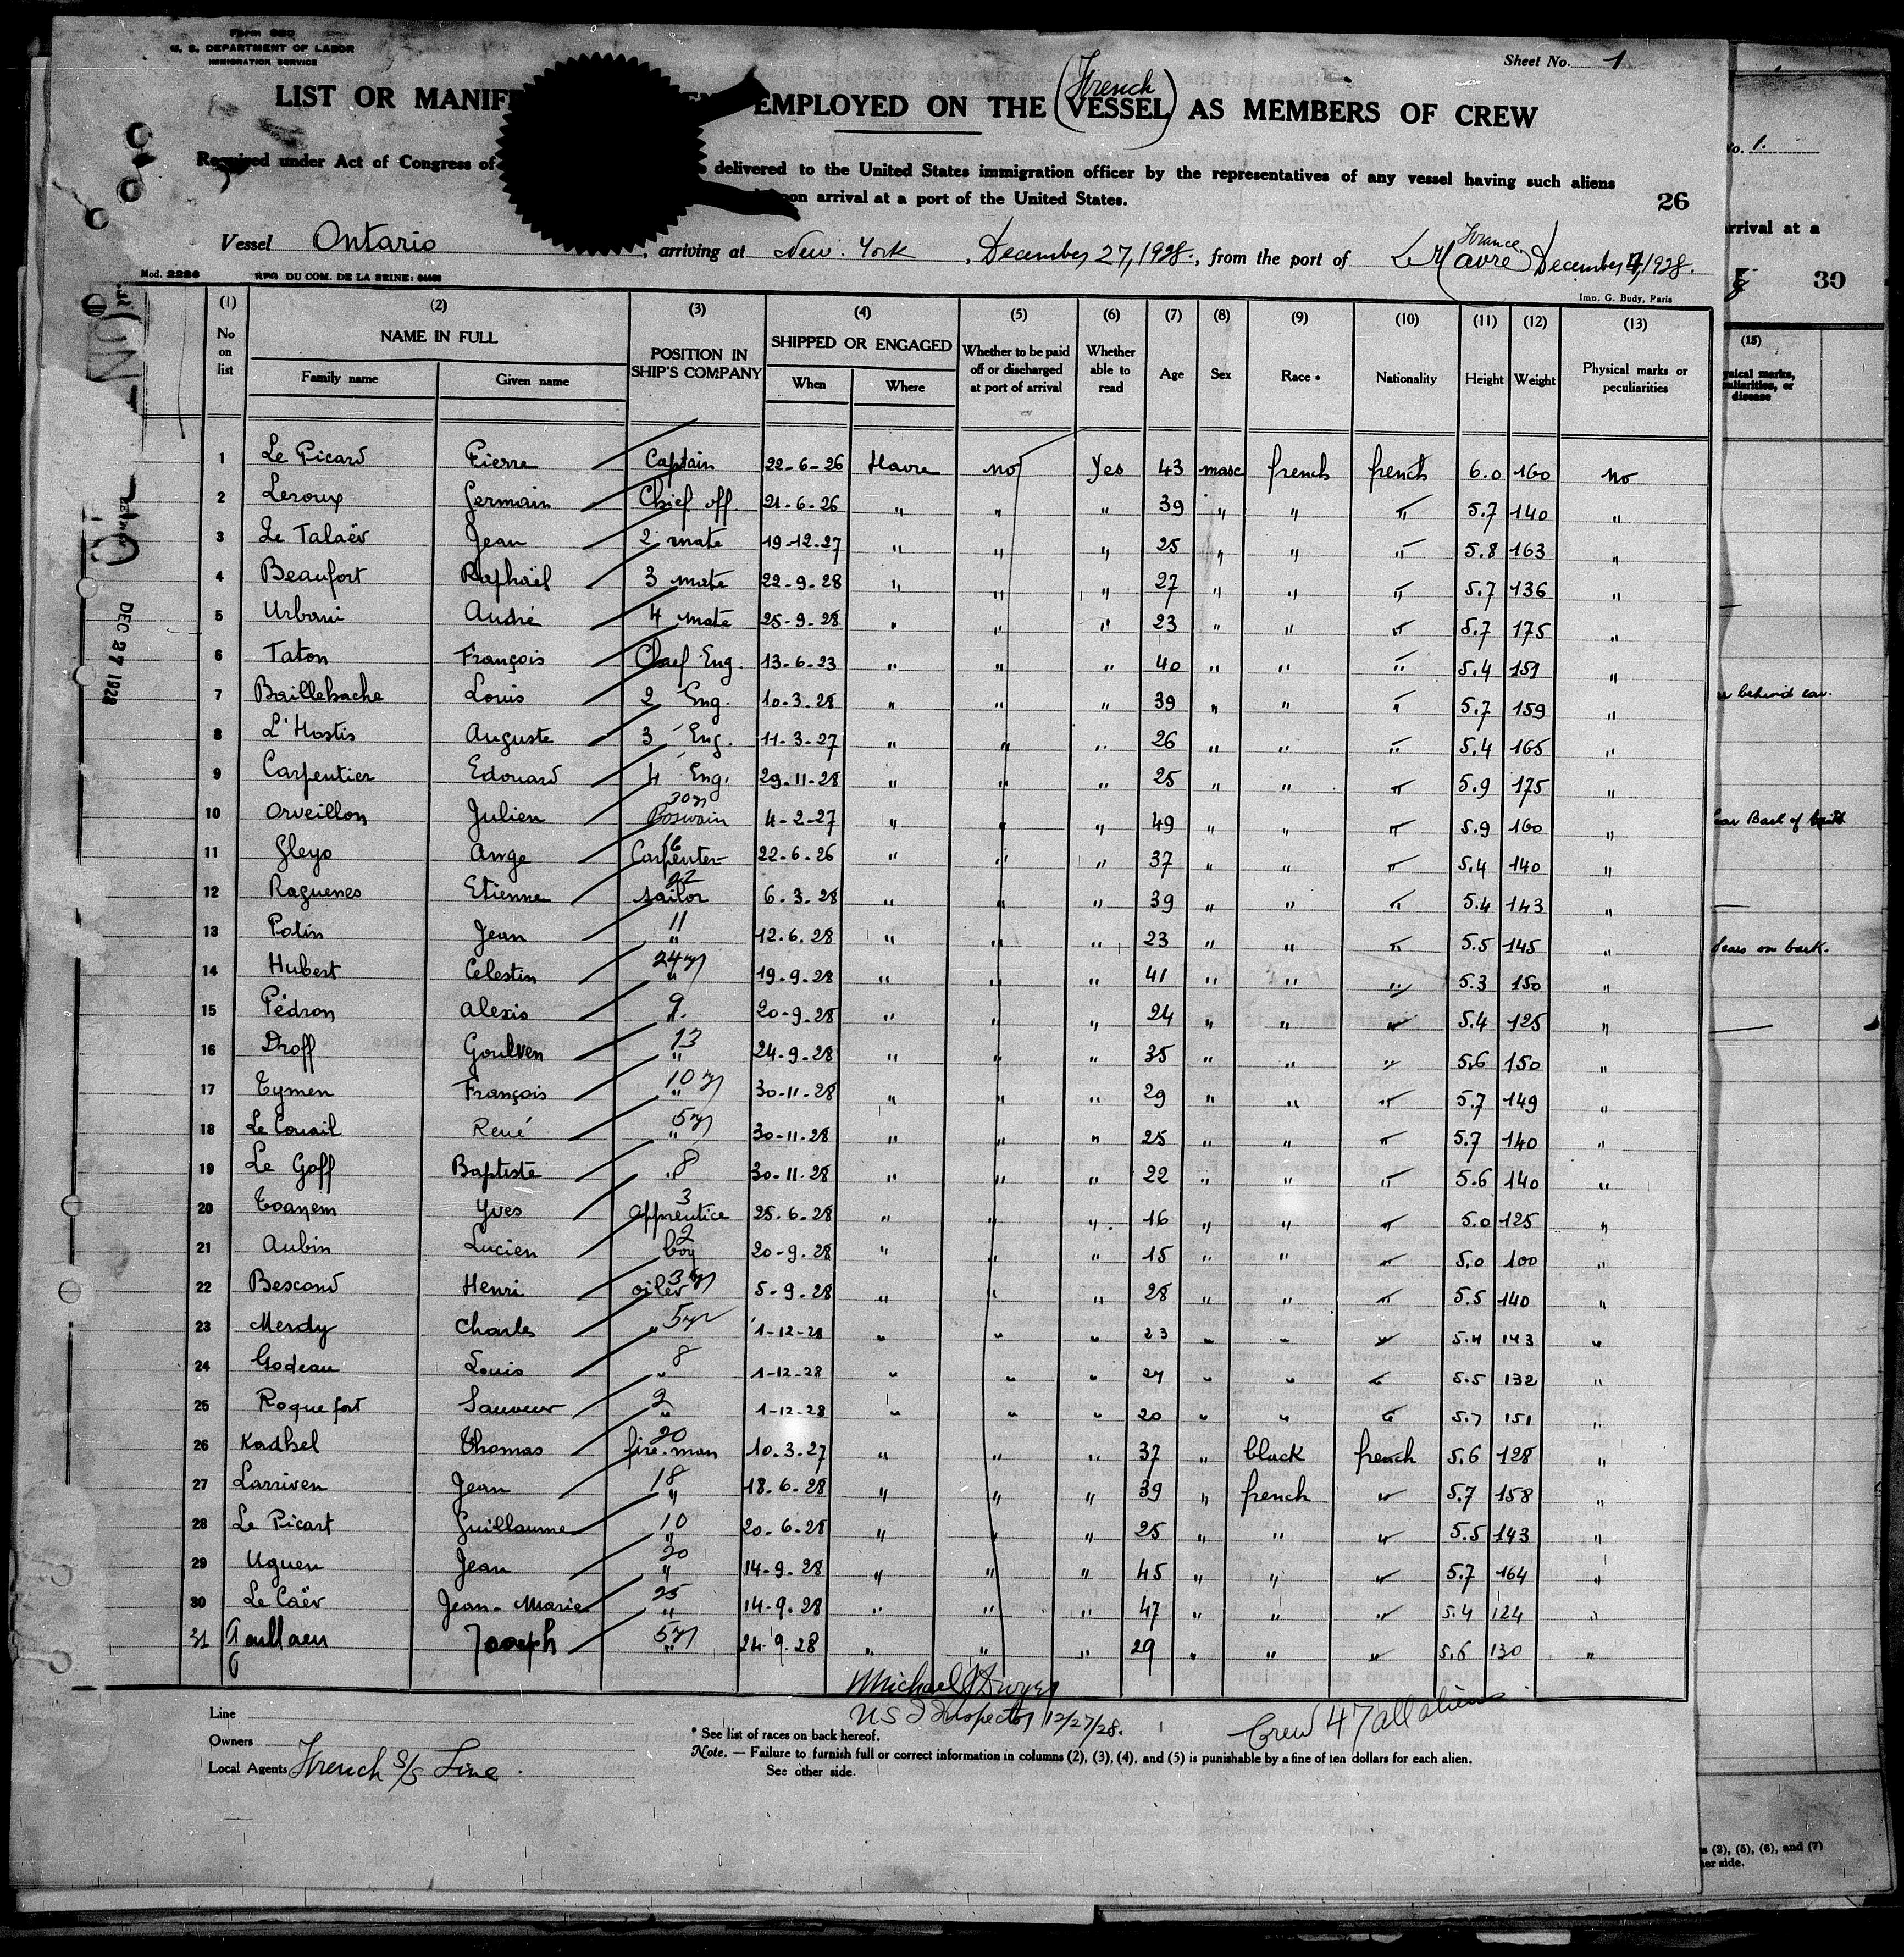 Form 680
U. S. DEPARTMENT OF LABOR
IMMIGRATION SERVICE
Sheet No. 1
LIST OR MANIF EMPLOYED ON THE (French VESSEL) AS MEMBERS OF CREW
Required under Act of Congress of delivered to the United States immigration officer by the representatives of any vessel having such aliens
upon arrival at a port of the United States.
26
Vessel Ontario, arriving at New York, December 27, 1928., from the port of Le Havre France December 7, 1928.
Mod. 2286 RPG DU COM. DE LA SEINE: Imp. G. Budy, Paris
(1) (2) (3) (4) (5) (6) (7) (8) (9) (10) (11) (12) (13)
No on list NAME IN FULL Family name Given name POSITION IN SHIP'S COMPANY SHIPPED OR ENGAGED When Where Whether to be paid off or discharged at port of arrival Whether able to read Age Sex Race * Nationality Height Weight Physical marks or peculiarities
1 Le Picard Pierre Captain 22-6-26 Havre no Yes 43 masc french french 6.0 160 no
2 Leroux Germain Chief off. 21-6-26 " " " 39 " " " 5.7 140 "
3 Le Talaër Jean 2 mate 19-12-27 " " " 25 " " " 5.8 163 "
4 Beaufort Raphaël 3 mate 22-9-28 " " " 27 " " " 5.7 136 "
5 Urbani André 4 mate 25-9-28 " " " 23 " " " 5.7 175 "
6 Taton François Chief Eng. 13-6-23 " " " 40 " " " 5.4 159 "
7 Baillehache Louis 2 Eng. 10-3-28 " " " 39 " " " 5.7 159 "
8 L'Hostis Auguste 3 Eng. 11-3-27 " " " 26 " " " 5.4 165 "
9 Carpentier Edouard 4 Eng. 29-11-28 " " " 25 " " " 5.9 175 "
10 Orveillon Julien 30y Boswain 4-2-27 " " " 49 " " " 5.9 160 "
11 Gleyo Ange 16 Carpenter 22-6-26 " " " 37 " " " 5.4 140 "
12 Raguenes Etienne 22 sailor 6-3-28 " " " 39 " " " 5.4 143 "
13 Potin Jean 11 " 12-6-28 " " " 23 " " " 5.5 145 "
14 Hubert Celestin 24y " 19-9-28 " " " 41 " " " 5.3 150 "
15 Pédron Alexis 9 " 20-9-28 " " " 24 " " " 5.4 125 "
16 Droff Goulven 13 " 24-9-28 " " " 35 " " " 5.6 150 "
17 Tymen François 10y " 30-11-28 " " " 29 " " " 5.7 149 "
18 Le Couail René 5y " 30-11-28 " " " 25 " " " 5.7 140 "
19 Le Goff Baptiste 8 " 30-11-28 " " " 22 " " " 5.6 140 "
20 Toanem Yves 3 apprentice 25-6-28 " " " 16 " " " 5.0 125 "
21 Aubin Lucien 2 boy 20-9-28 " " " 15 " " " 5.0 100 "
22 Bescond Henri 3y oiler 5-9-28 " " " 28 " " " 5.5 140 "
23 Merdy Charles 5y " 1-12-28 " " " 23 " " " 5.4 143 "
24 Godeau Louis 8 " 1-12-28 " " " 27 " " " 5.5 132 "
25 Roquefort Sauveur 2 " 1-12-28 " " " 20 " " " 5.7 151 "
26 Kadhel Thomas 20 fire-man 10-3-27 " " " 37 " black french 5.6 128 "
27 Larriven Jean 18 " 18-6-28 " " " 39 " french " 5.7 158 "
28 Le Picart Guillaume 10 " 20-6-28 " " " 25 " " " 5.5 143 "
29 Uguen Jean 20 " 14-9-28 " " " 45 " " " 5.7 164 "
30 Le Caër Jean-Marie 25 " 14-9-28 " " " 47 " " " 5.4 124 "
31 Joseph 5y " 24-9-28 " " " 29 " " " 5.6 130 "
Michael J Dwyer
US I Inspector 12/27/28.
Crew 47 all aliens
Line
Owners
Local Agents French S/S Line.
* See list of races on back hereof.
Note. — Failure to furnish full or correct information in columns (2), (3), (4), and (5) is punishable by a fine of ten dollars for each alien.
See other side.
DEC 27 1928
No. 1.
arrival at a
30
(15)
physical marks, peculiarities, or disease
behind ear.
Scars on back.
(2), (5), (6), and (7)
her side.